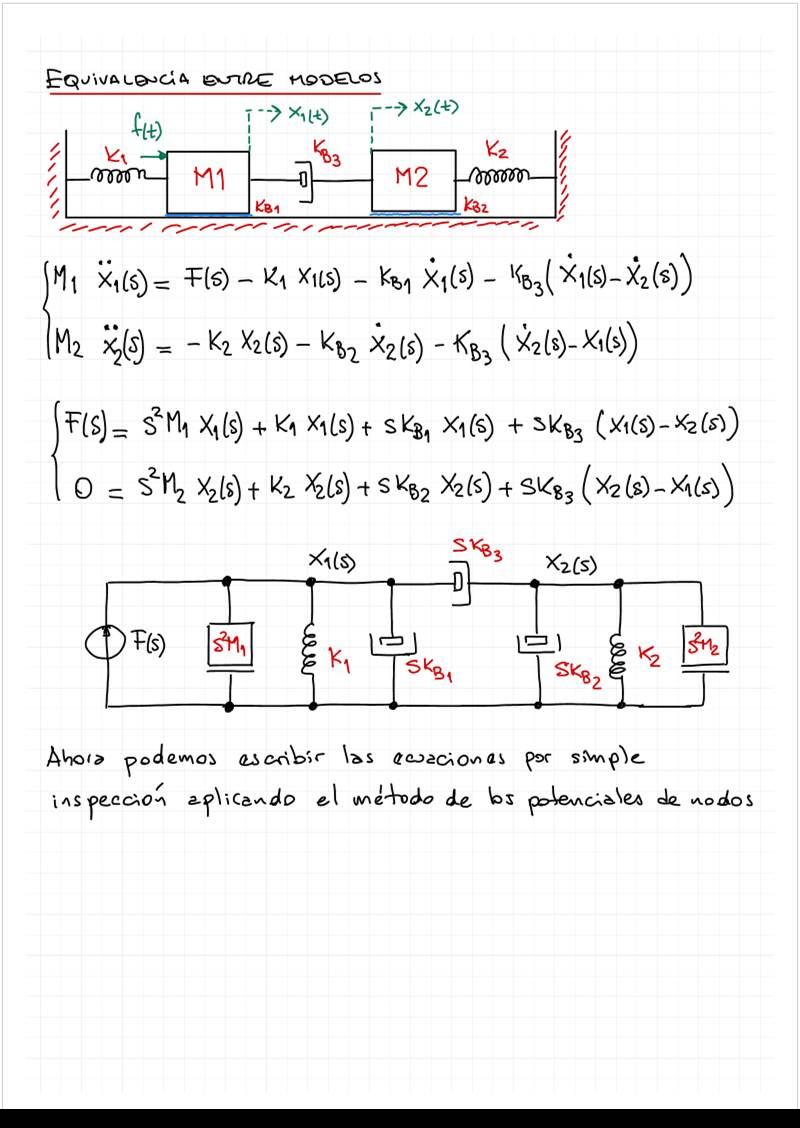 EQUIVALENCIA ENTRE MODELOS
f(t) X₁(t) X₂(t)
K₁ M1 K_B3 M2 K₂
K_B1 K_B2
M₁ Ẍ₁(s) = F(s) - K₁ X₁(s) - K_B1 Ẋ₁(s) - K_B3(Ẋ₁(s) - Ẋ₂(s))
M₂ Ẍ₂(s) = -K₂ X₂(s) - K_B2 Ẋ₂(s) - K_B3 (Ẋ₂(s) - Ẋ₁(s))
F(s) = S²M₁ X₁(s) + K₁ X₁(s) + SK_B1 X₁(s) + SK_B3 (X₁(s) - X₂(s))
0 = S²M₂ X₂(s) + K₂ X₂(s) + SK_B2 X₂(s) + SK_B3 (X₂(s) - X₁(s))
X₁(s) SK_B3 X₂(s)
F(s) S²M₁ K₁ SK_B1 SK_B2 K₂ S²M₂
Ahora podemos escribir las ecuaciones por simple
inspección aplicando el método de los potenciales de nodos